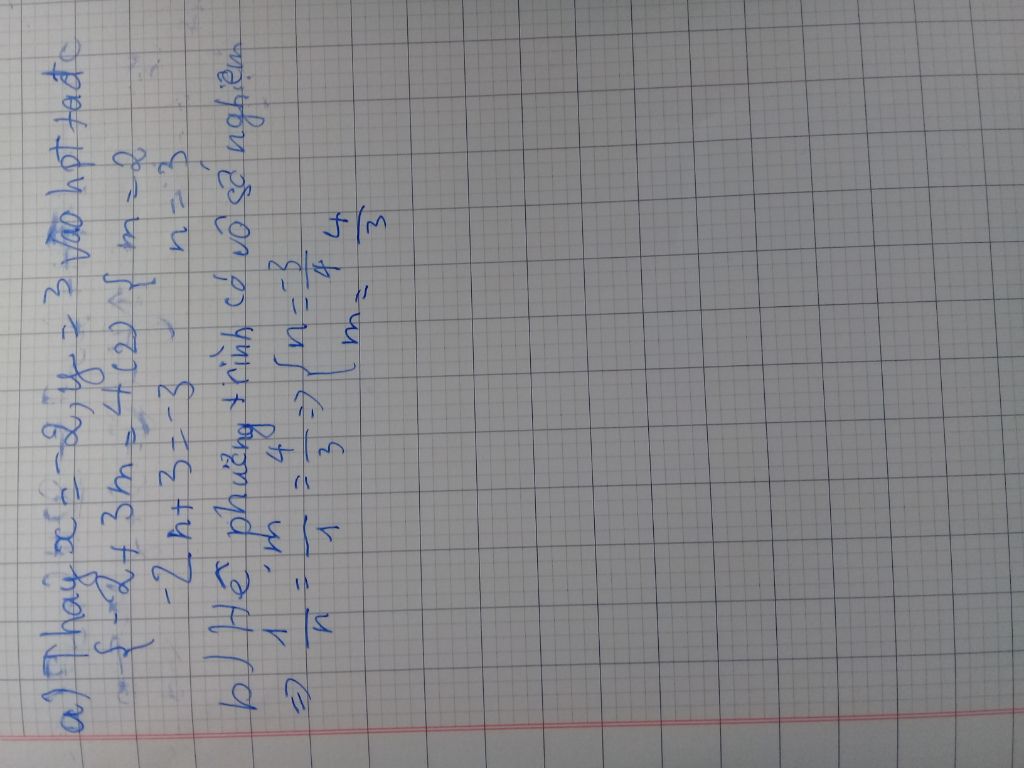 a) Thay x = -2, y = 3 vào hpt ta đc
{ -2 + 3m = 4 (2) { m = 2
-2n + 3 = -3 n = 3
b) Hệ phương trình có vô số nghiệm
⇒ 1/n = m/1 = 4/3 ⇒ { n = 3/4
m = 4/3